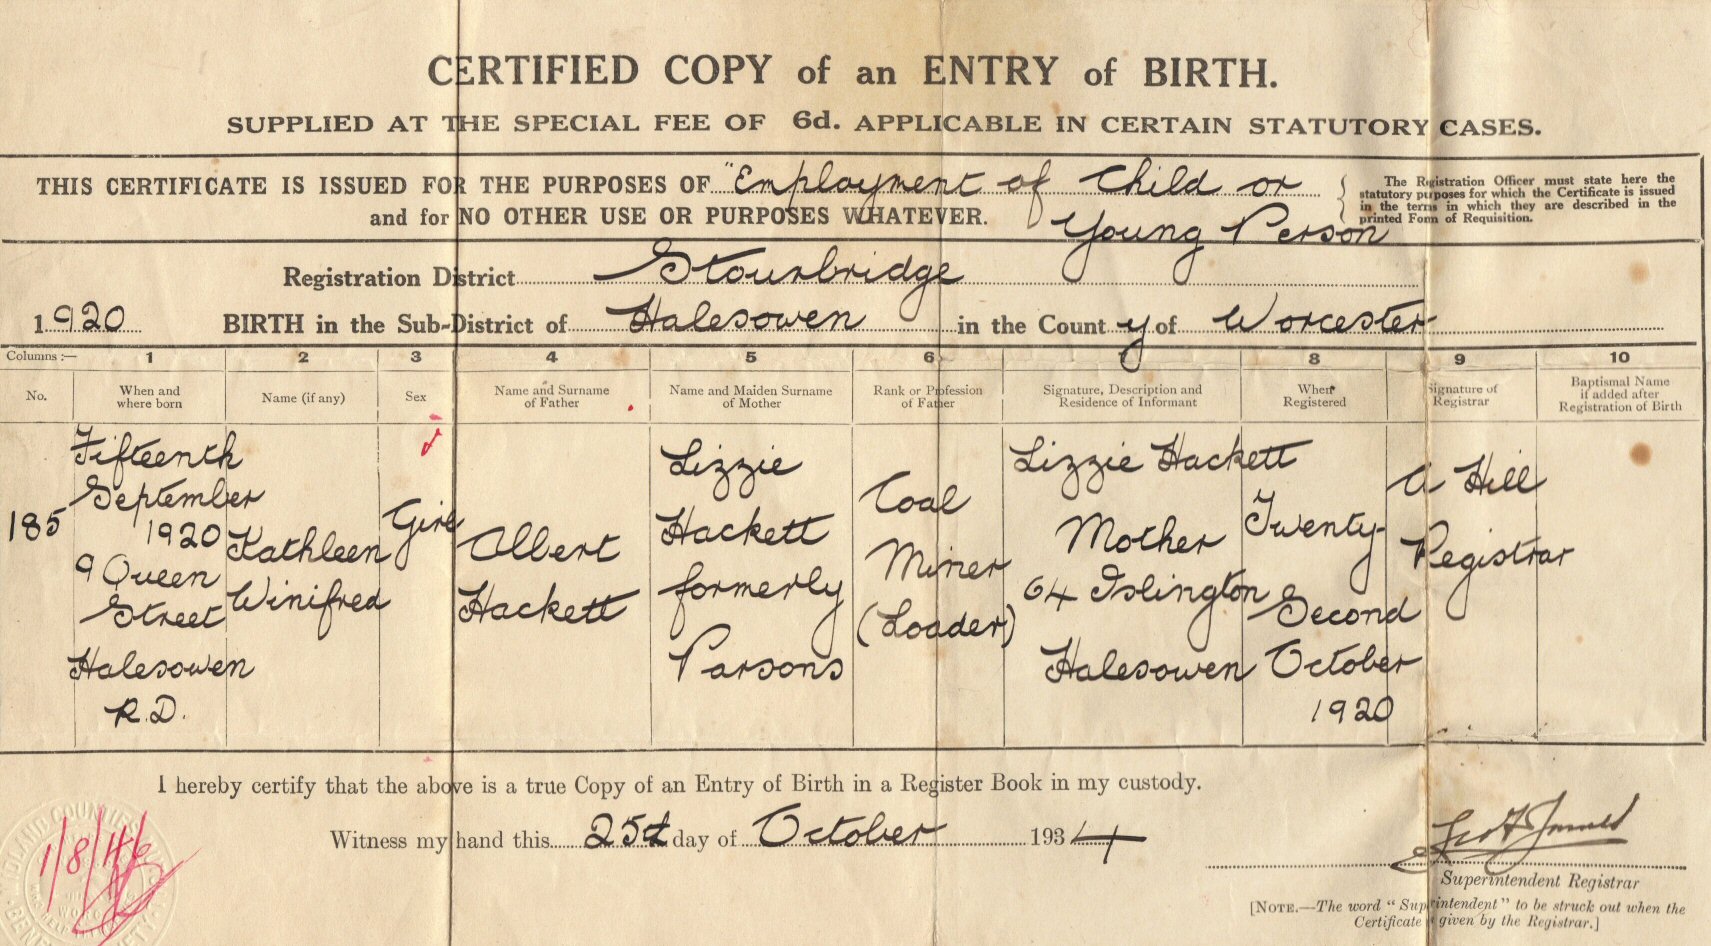 CERTIFIED COPY of an ENTRY of BIRTH.
SUPPLIED AT THE SPECIAL FEE OF 6d. APPLICABLE IN CERTAIN STATUTORY CASES.
THIS CERTIFICATE IS ISSUED FOR THE PURPOSES OF "Employment of Child or
and for NO OTHER USE OR PURPOSES WHATEVER. Young Person
The Registration Officer must state here the
statutory purposes for which the Certificate is issued
in the terms in which they are described in the
printed Form of Requisition.
Registration District Stourbridge
1920 BIRTH in the Sub-District of Halesowen in the County of Worcester
Columns :— 1 2 3 4 5 6 7 8 9 10
No.
When and
where born
Name (if any)
Sex
Name and Surname
of Father
Name and Maiden Surname
of Mother
Rank or Profession
of Father
Signature, Description and
Residence of Informant
When
Registered
Signature of
Registrar
Baptismal Name
if added after
Registration of Birth
185
Fifteenth
September
1920
9 Queen
Street
Halesowen
R.D.
Kathleen
Winifred
Girl
Albert
Hackett
Lizzie
Hackett
formerly
Parsons
Coal
Miner
(Loader)
Lizzie Hackett
Mother
64 Islington
Halesowen
Twenty-
Second
October
1920
A Hill
Registrar
I hereby certify that the above is a true Copy of an Entry of Birth in a Register Book in my custody.
Witness my hand this 25th day of October 1934
Superintendent Registrar
[NOTE.—The word "Superintendent" to be struck out when the
Certificate is given by the Registrar.]
1/8/46
MIDLAND COUNTIES